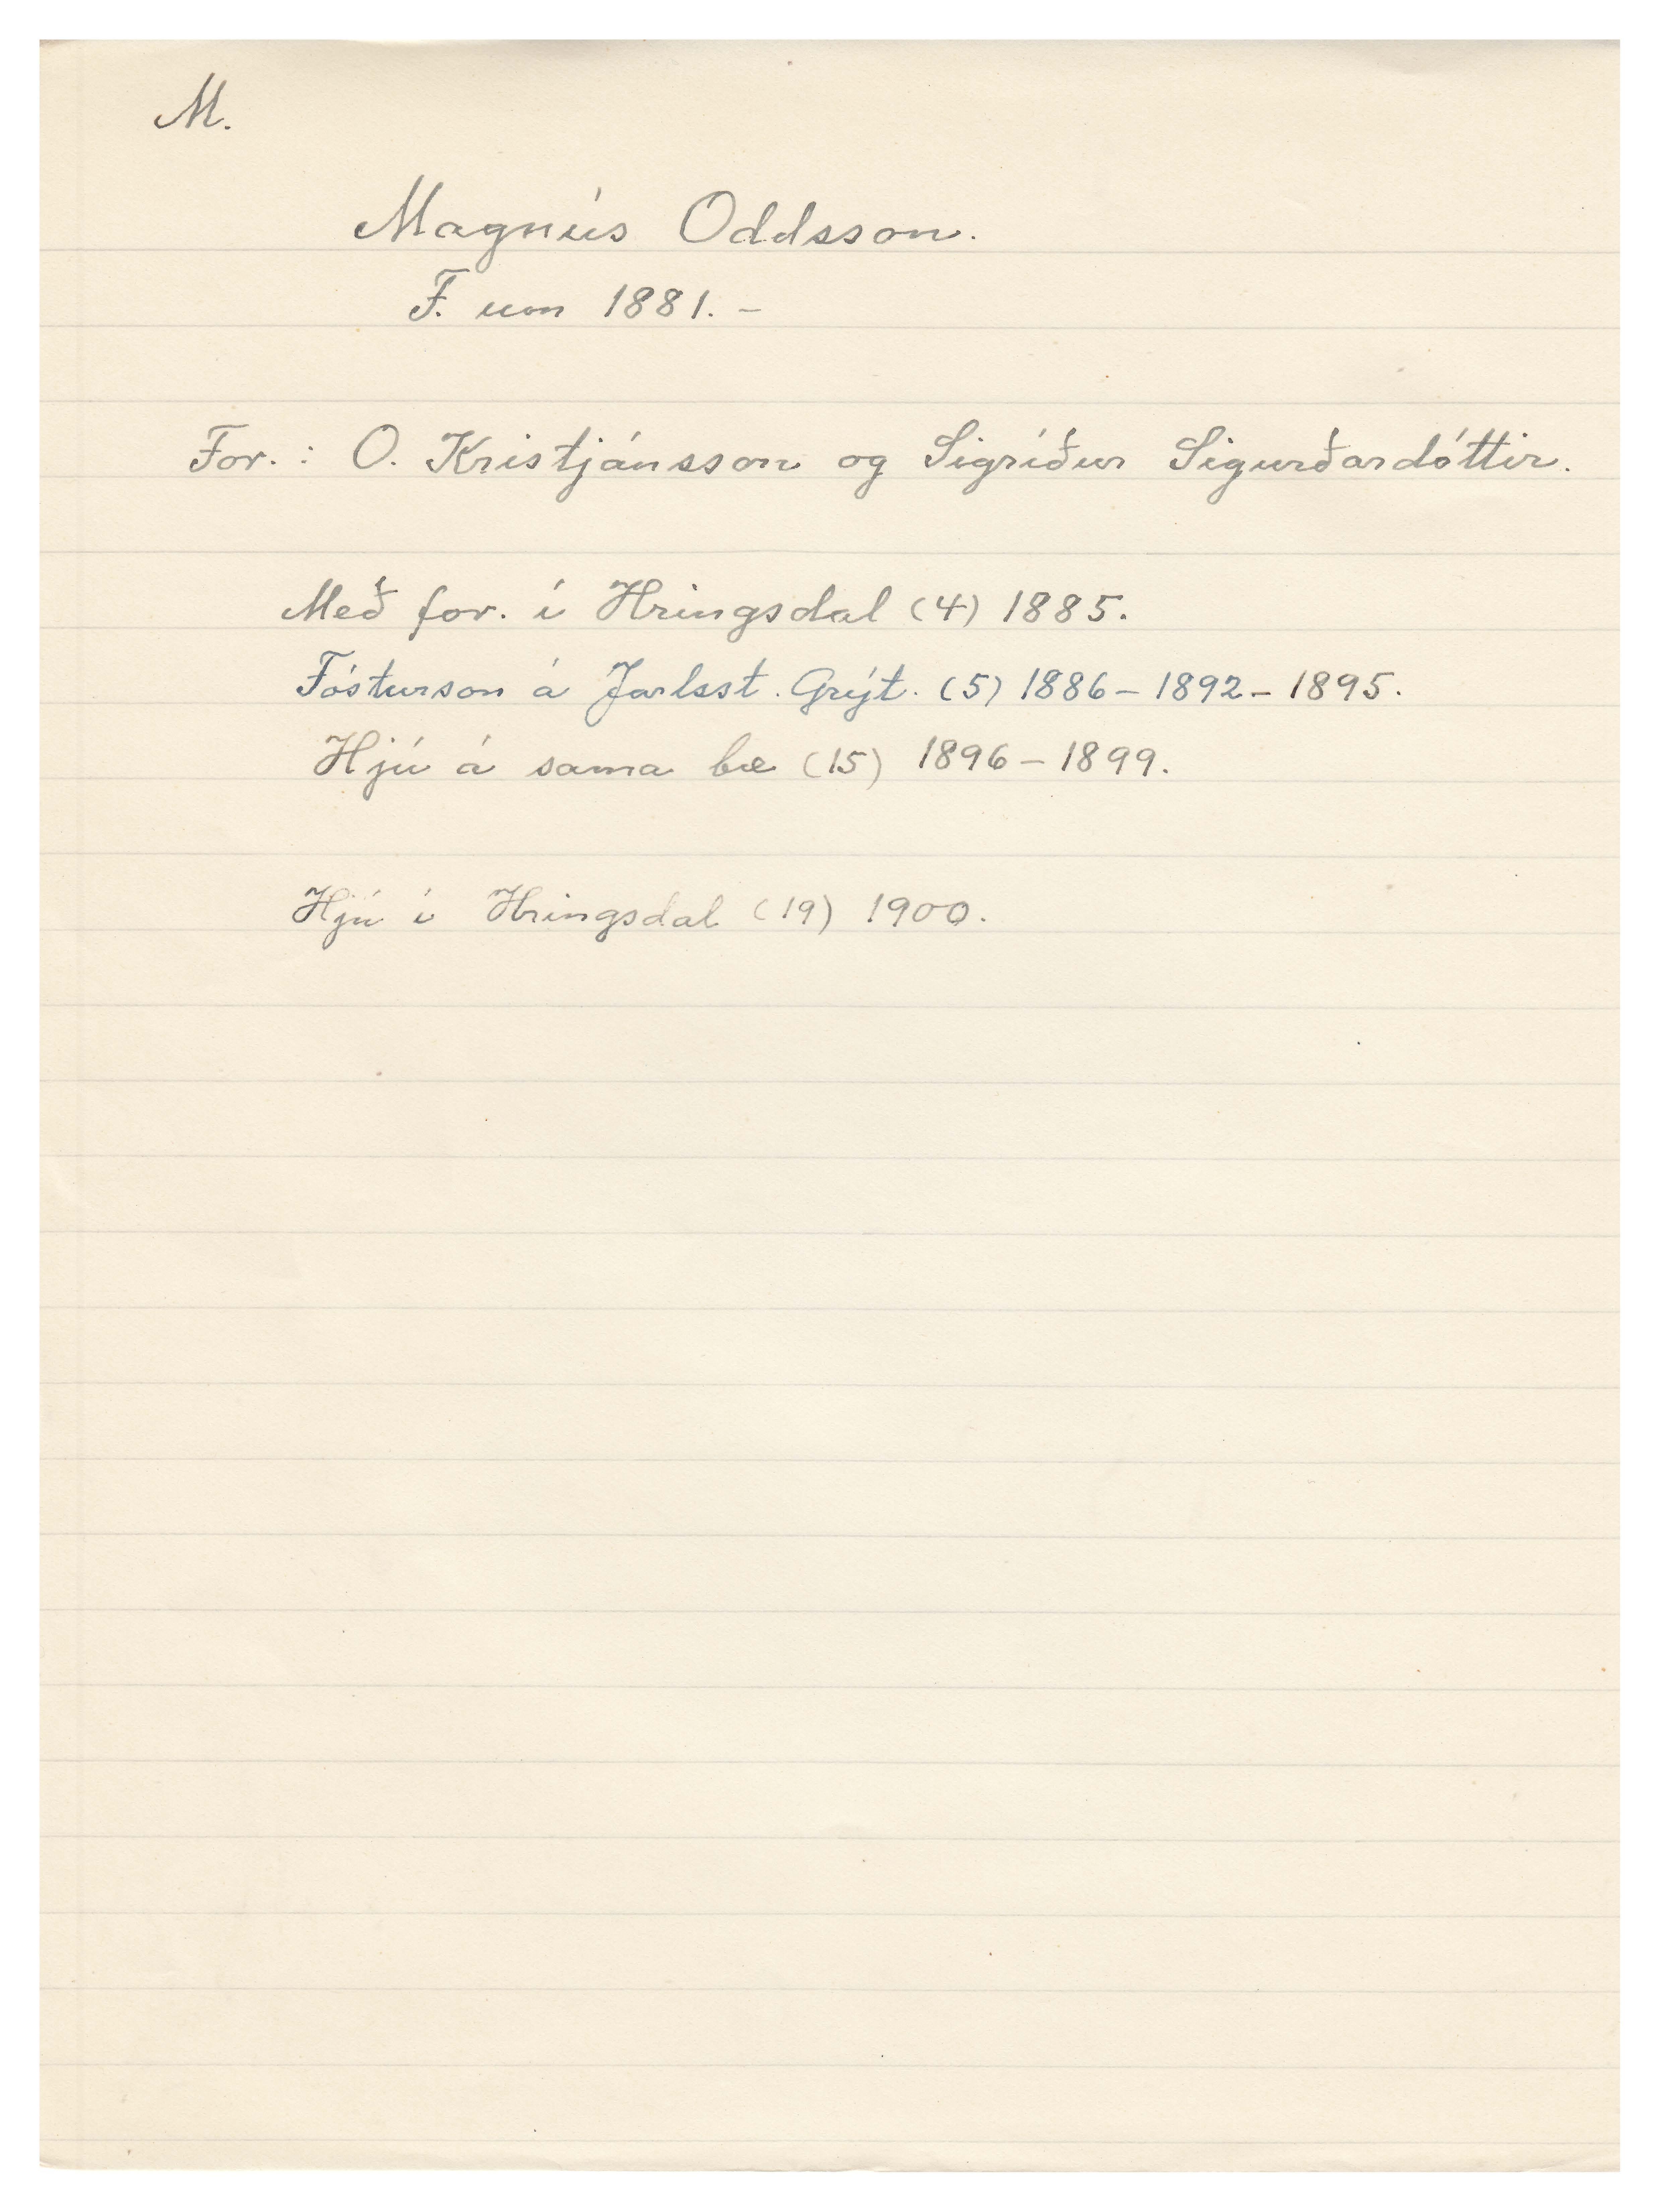 M.
Magnús Oddsson.
F. um 1881. –
For.: O. Kristjánsson og Sigríður Sigurðardóttir.
Með for. í Hringsdal (4) 1885.
Fósturson á Jarlsst. Grýt. (5) 1886 – 1892 – 1895.
Hjú á sama bæ (15) 1896 – 1899.
Hjú í Hringsdal (19) 1900.